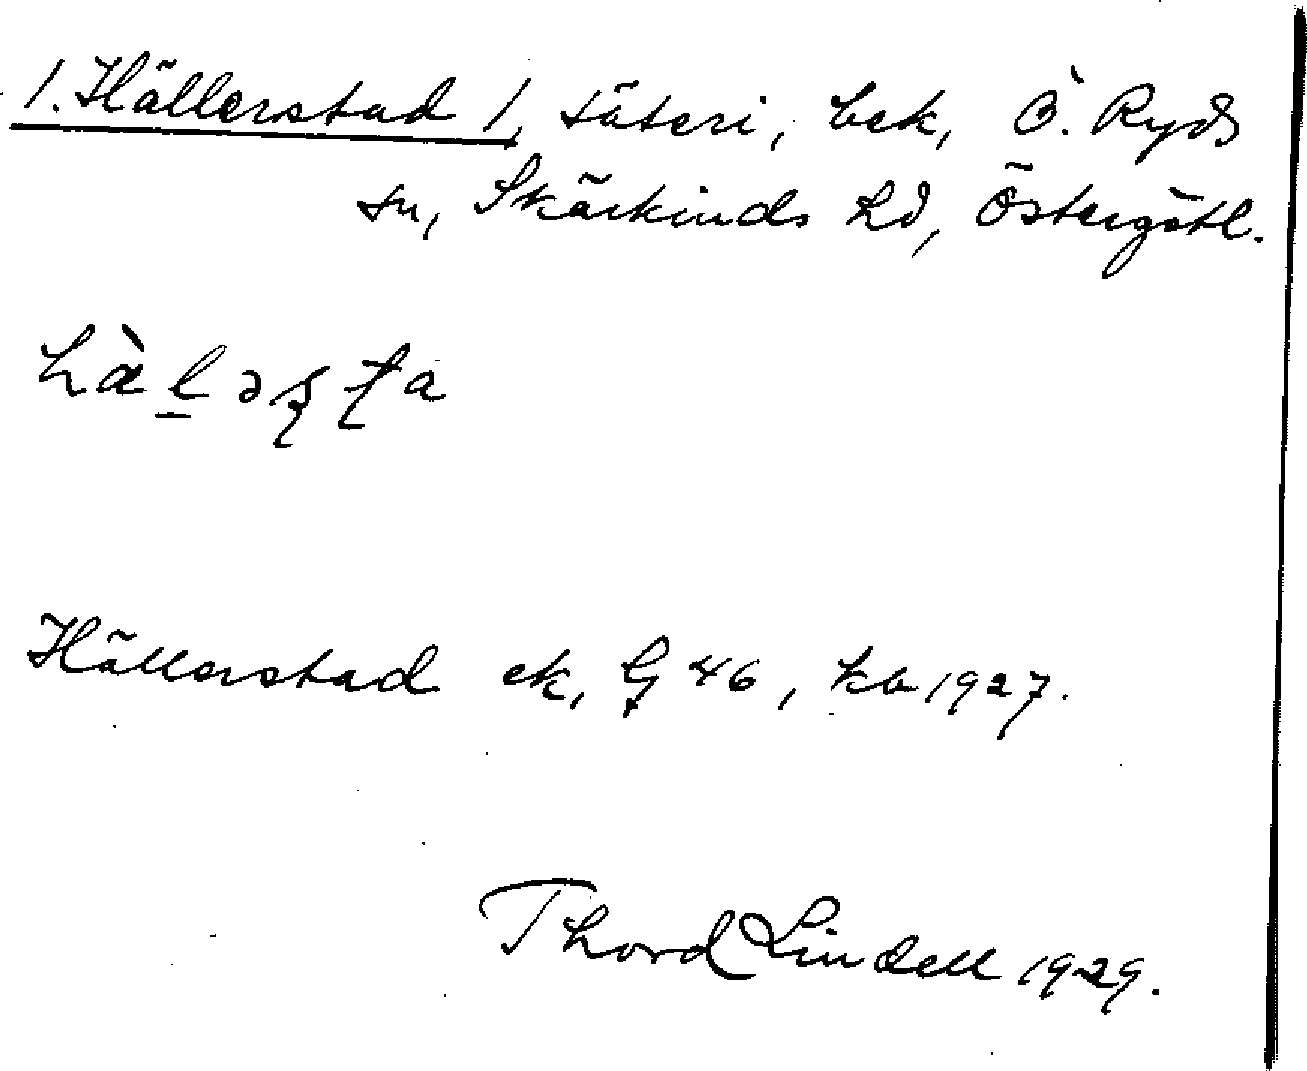 1. Hällerstad 1, säteri, bek, Ö. Ryds
sn, Skärkinds hd, Östergötl.
hä̀l̠əʂʈa
Hällerstad ek, G 46, kb 1927.
Thord Lindell 1929.